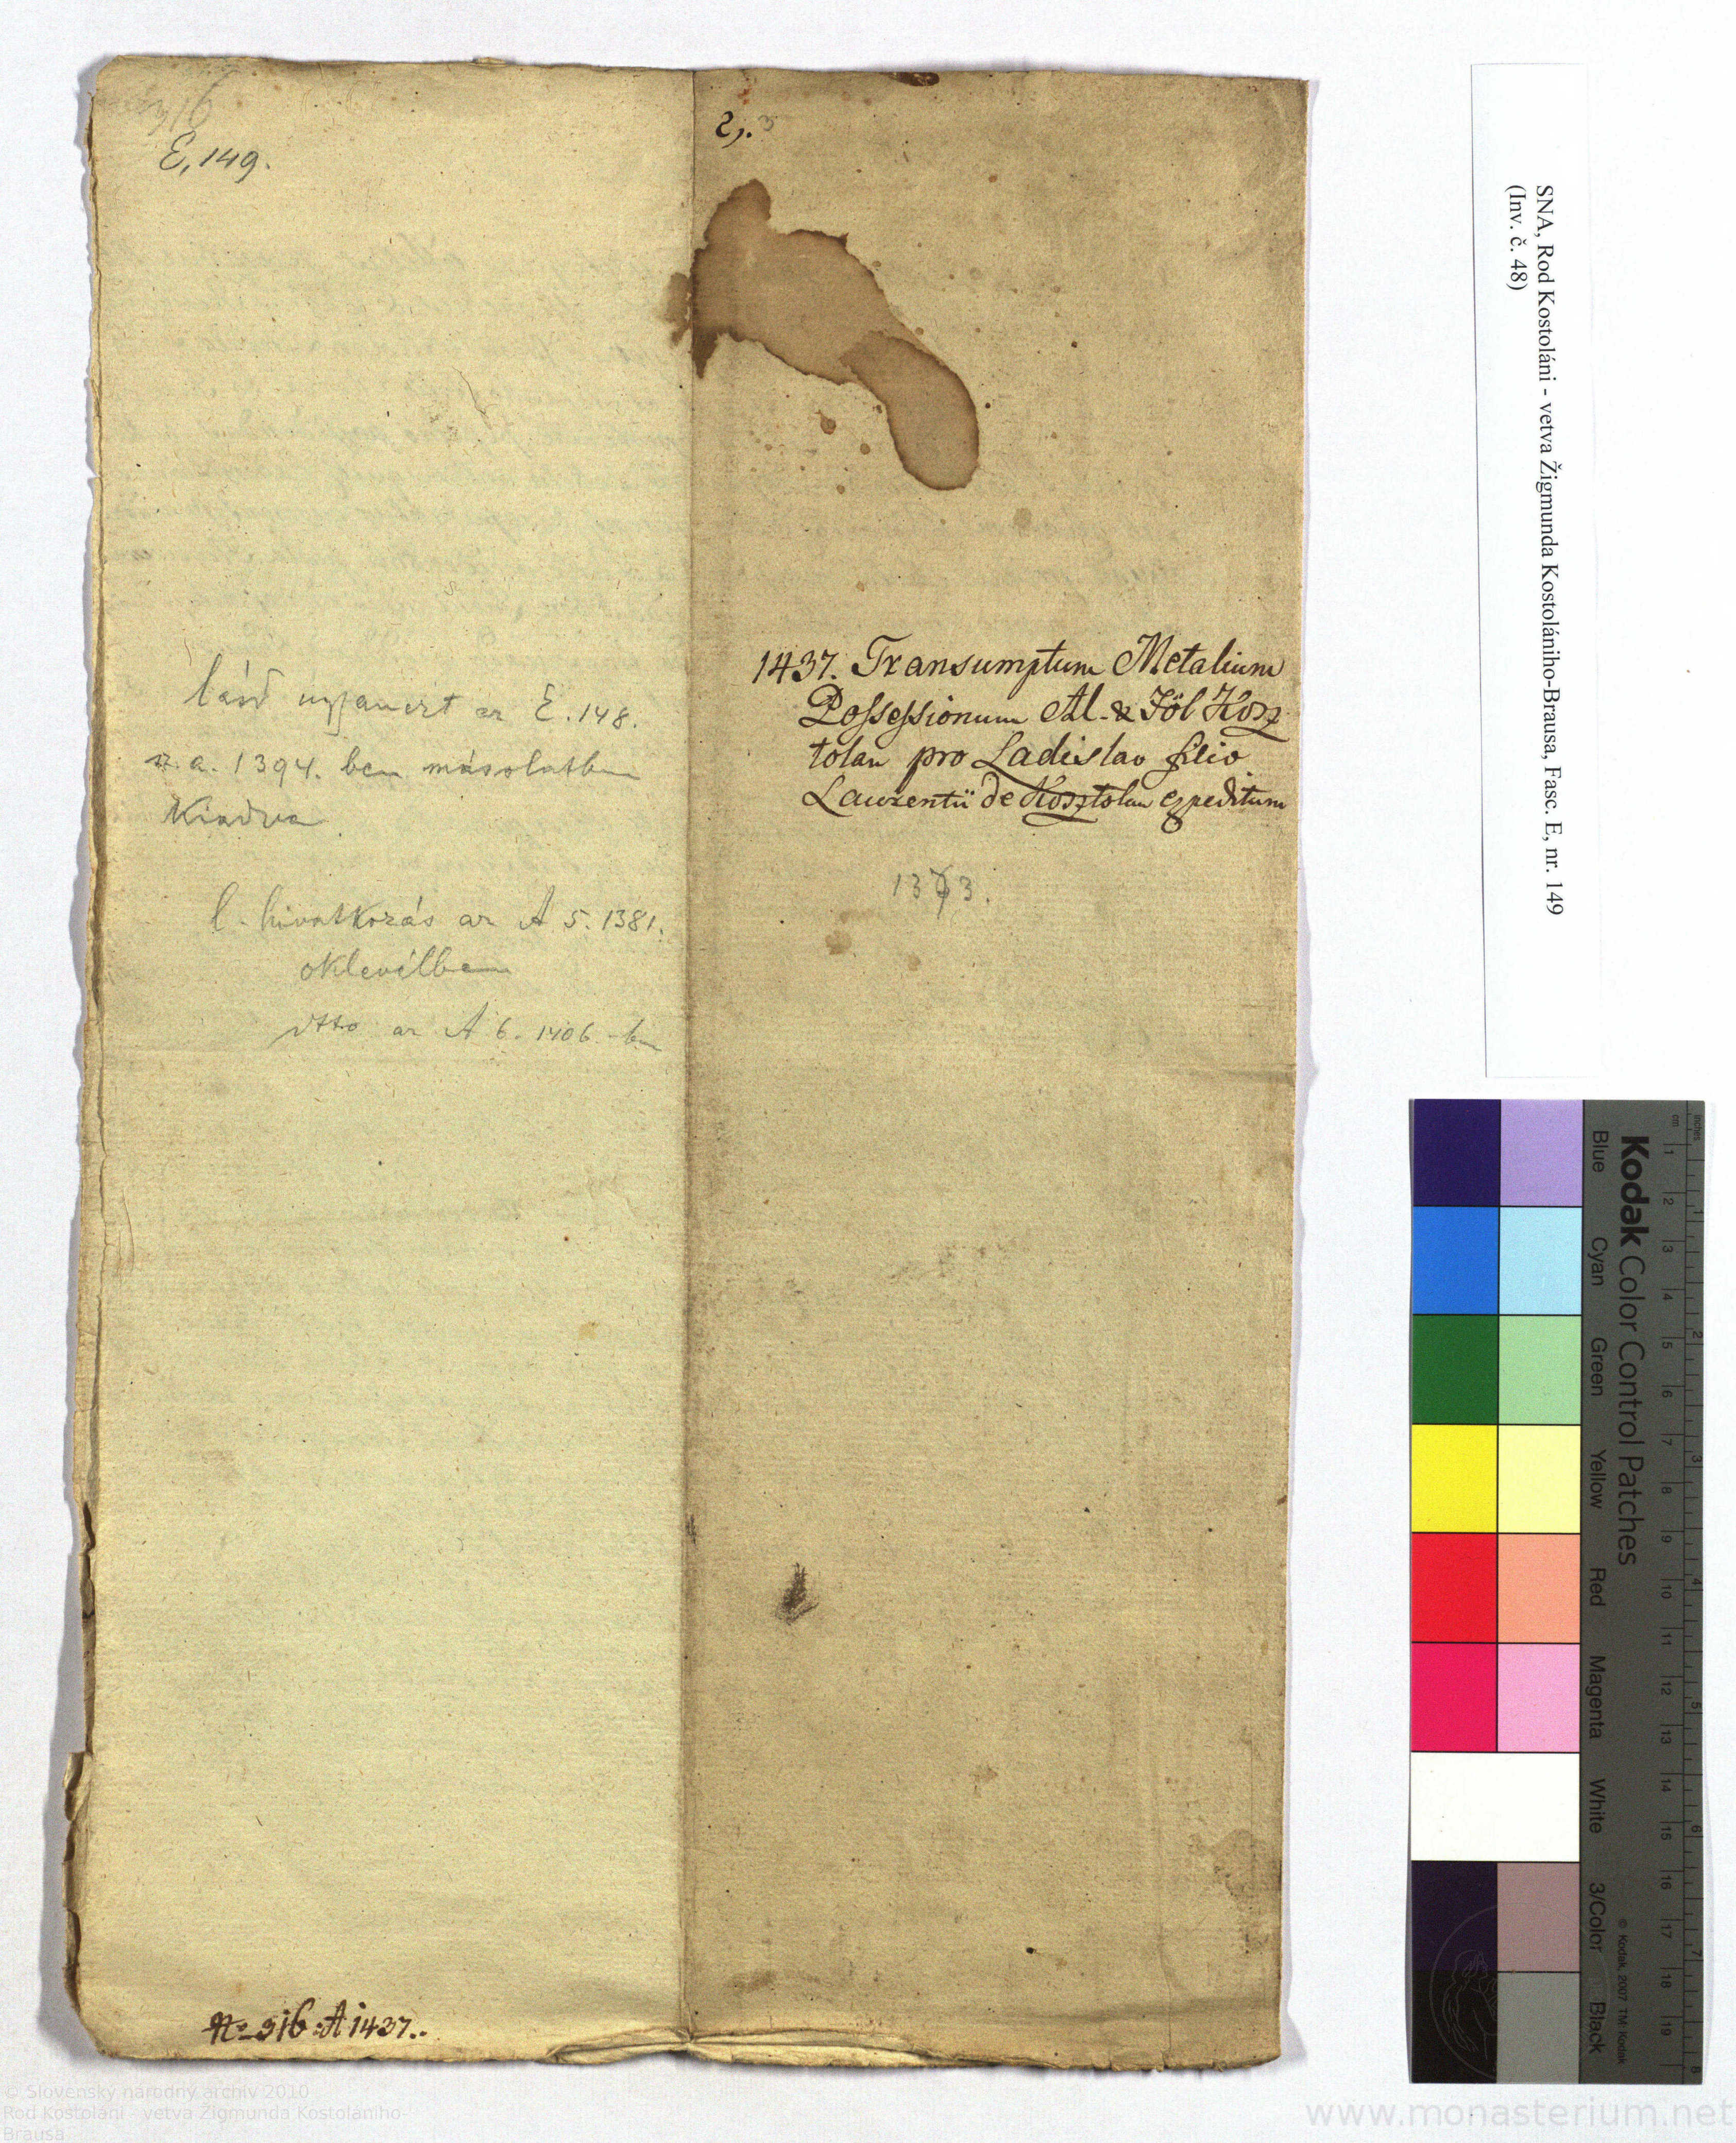 916
E, 149.
lásd ugyanezt az E. 148.
sz. a. 1394. ben másolatban
Kiadva
l. hivatkozás az A 5. 1381.
oklevélben
dtto az A 6. 1406-ban
No 916 A 1437.
2,. 3
1437. Transumptum Metalium
Possessionum Al- & Föl Kosz
tolan pro Ladislao filio
Laurentii de Kosztolan expeditum
1373.
SNA, Rod Kostoláni - vetva Žigmunda Kostolániho-Brausa, Fasc. E, nr. 149
(Inv. č. 48)
Kodak Color Control Patches
Blue Cyan Green Yellow Red Magenta White 3/Color Black
© Kodak, 2007 TM: Kodak
inches 1 2 3 4 5 6 7 8
cm 1 2 3 4 5 6 7 8 9 10 11 12 13 14 15 16 17 18 19
© Slovenský národný archív 2010
Rod Kostoláni - vetva Žigmunda Kostolániho-
Brausa
www.monasterium.net